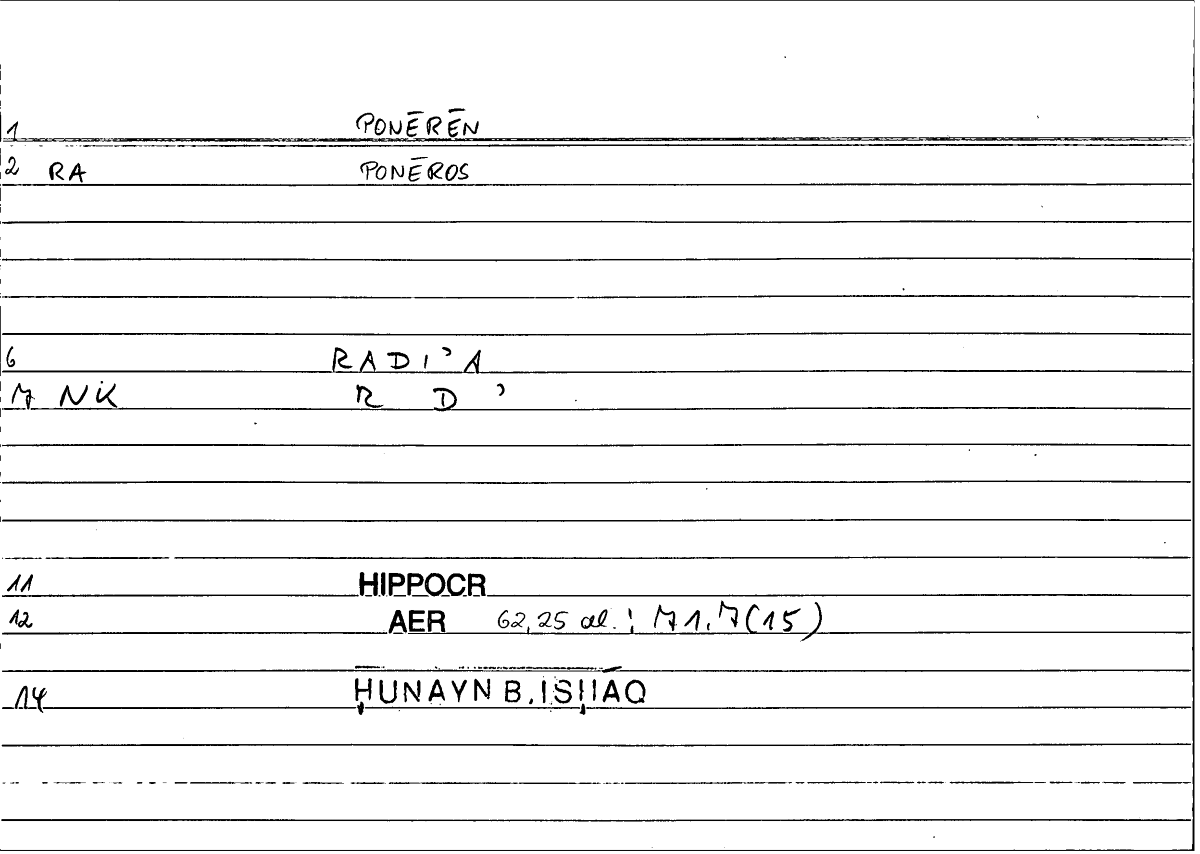 1 PONĒRĒN
2 RA PONĒROS
6 RADI'A
7 NK R D '
11 HIPPOCR
12 AER 62,25 al.; 71.7(15)
14 ḤUNAYN B. ISḤĀQ